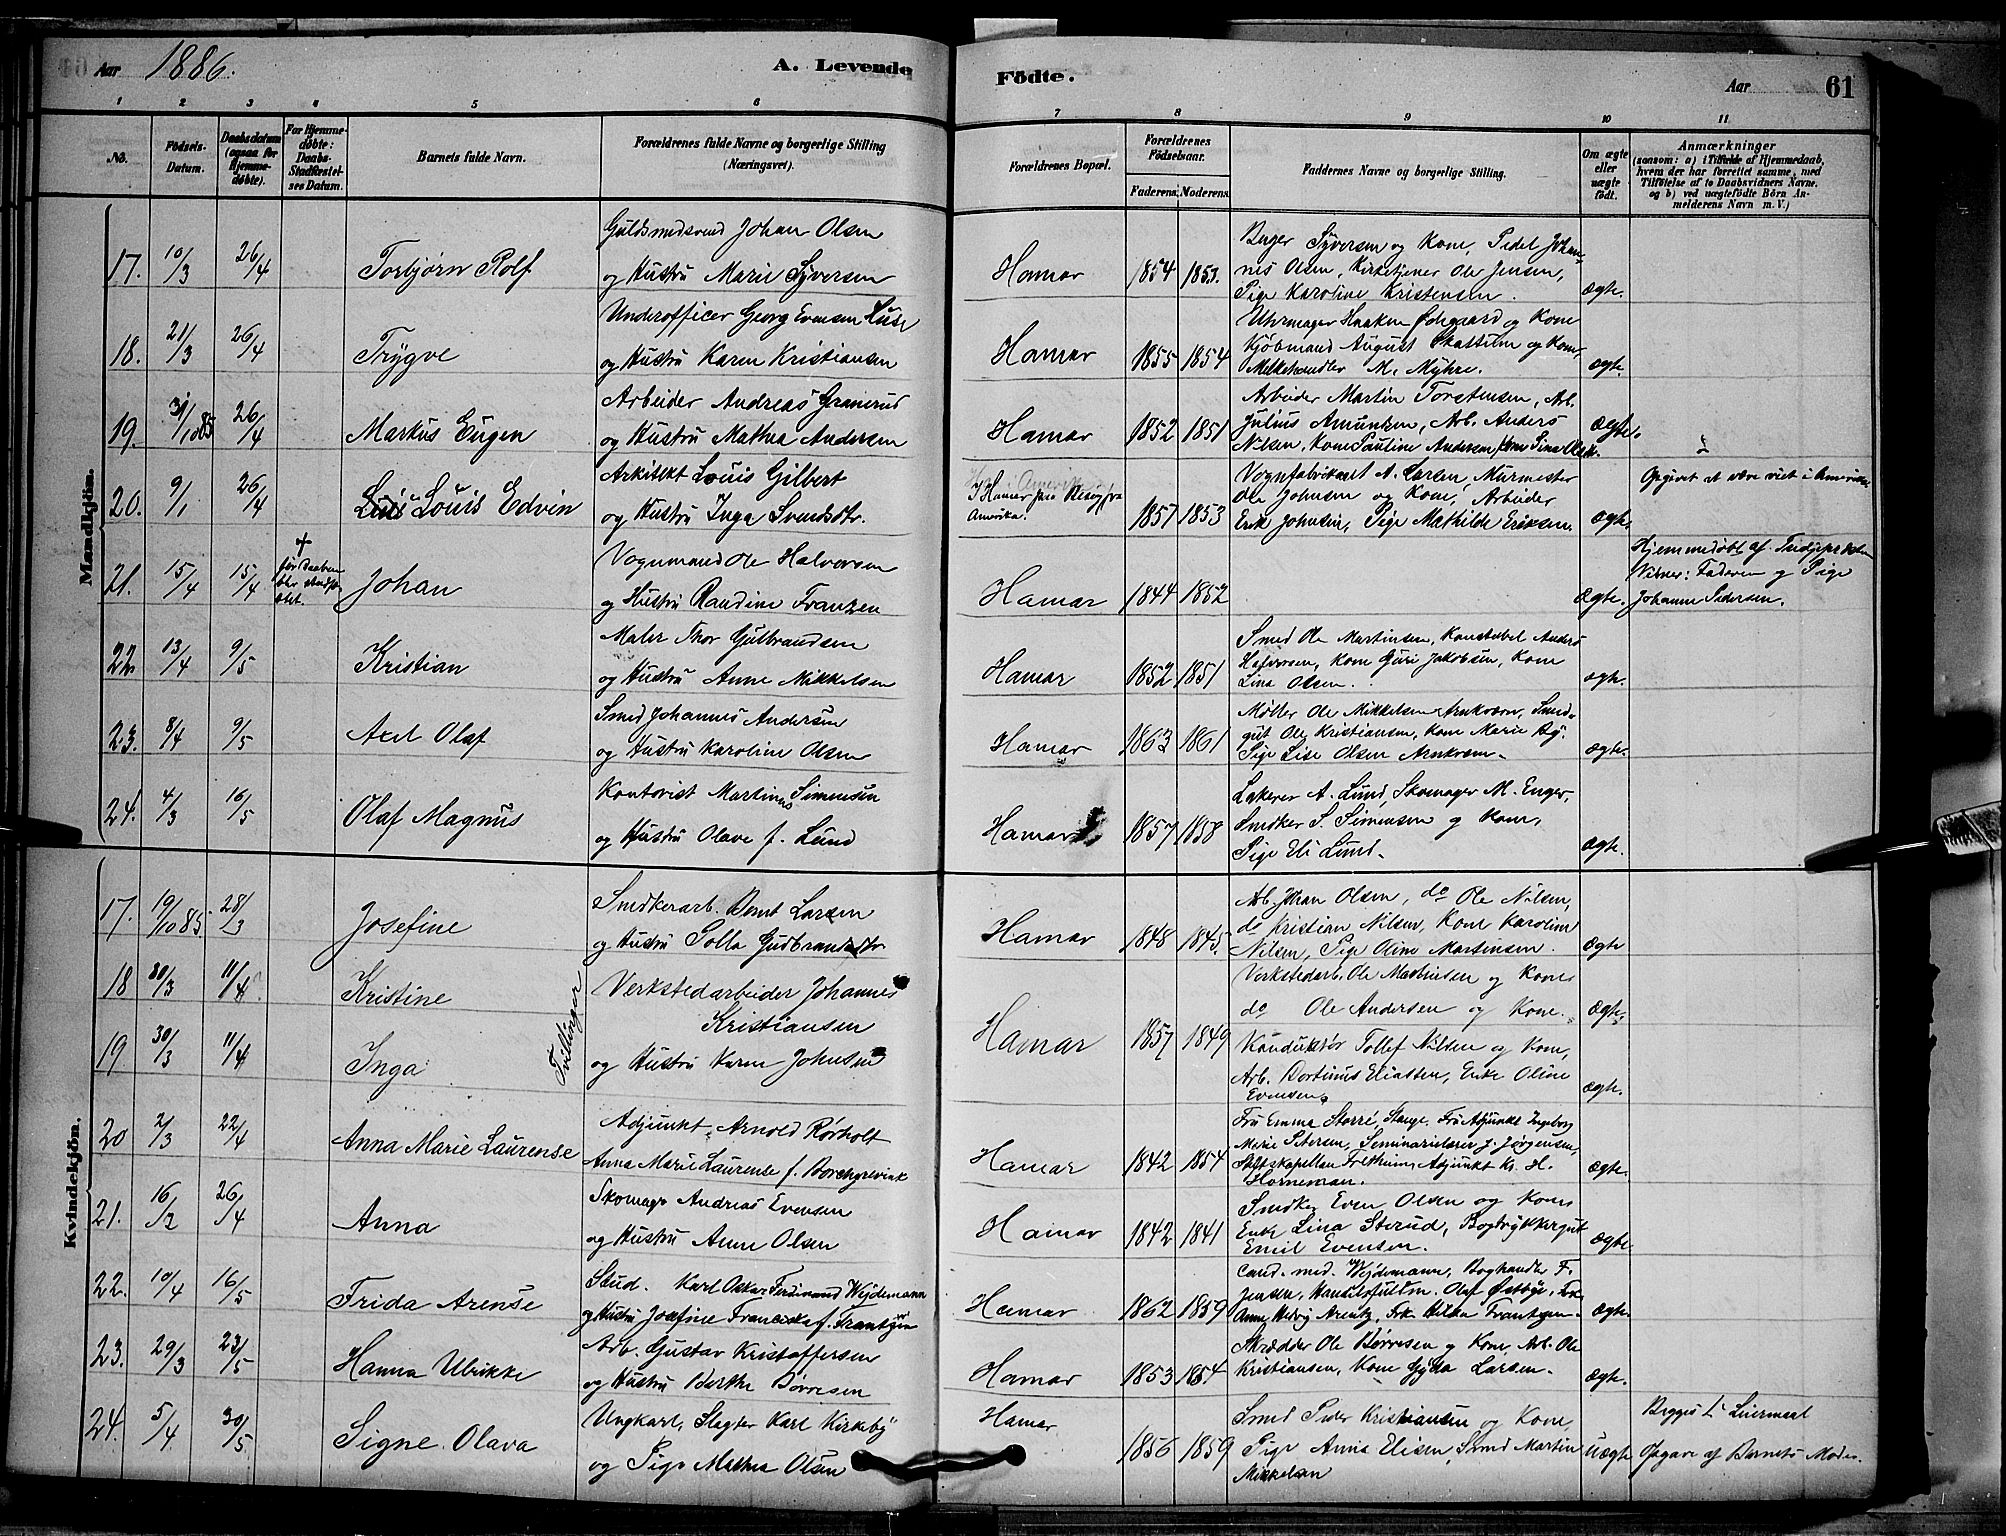 Aar 1886.
A. Levende Födte.
Aar
61
1 2 3 4 5 6 7 8 9 10 11
No.
Födsels-
Datum.
Daabsdatum
(ogsaa for
Hjemme-
døbte).
For Hjemme-
døbte:
Daabs-
Stadfæstel-
ses Datum.
Barnets fulde Navn.
Forældrenes fulde Navne og borgerlige Stilling
(Næringsvei).
Forældrenes Bopæl.
Forældrenes
Födselsaar.
Faderens. Moderens.
Faddernes Navne og borgerlige Stilling.
Om ægte
eller
uægte
født.
Anmærkninger
(saasom: a) i Tilfælde af Hjemmedaab,
hvem der har forrettet samme, med
Tilföielse af to Daabsvidners Navne,
og b) ved uægtefödte Börn An-
melderens Navn m. V.)
Mandkjön.
17. 10/3 26/4 Torbjørn Rolf
Guldsmedsvend Johan Olsen
og Hustru Marie Syversen
Hamar 1854 1853.
Syversen og Kone, Johan-
nes Olsen, Kirketjener Ole Jensen,
Pige Karoline Kristensen.
ægte.
18. 21/3 26/4 Trygve
Underofficer Georg Evensen Huse
og Hustru Karen Kristiansen
Hamar 1855 1854
Uhrmager Haaken Ødegaard og Kone
Kjøbmand August Skattum og Kone,
Melkehandler M. Myhre.
ægte.
19. 31/10 85 26/4 Markus Eugen
Arbeider Andreas Granerud
og Hustru Mathea Andersen
Hamar 1852 1851
Arbeider Martin Torstensen, Arb.
Julius Amundsen, Arb. Anders
Nilsen, Kone Pauline Andersen,
Ægte.
20. 9/1 26/4 Louis Edvin
Arkitekt Louis Gilbert
og Hustru Inga Svendsdtr.
I Hamar paa Besøg fra
Amerika.
1857 1853
Vognfabrikant A. Larsen, Murmester
Ole Johnsen og Kone, Arbeider
Erik Johnsen, Pige Mathilde Eriksen.
ægte.
Opgivet at være viet i Amerika
21. 15/4 15/4
†
før Daaben
blev stadfæ-
stet.
Johan
Vognmand Ole Halvorsen
og Hustru Randine Franzen
Hamar 1844 1852
Ægte.
Hjemmedøbt af
Vidner: Faderen og Pige
Johanne Pedersen.
22. 13/4 9/5 Kristian
Maler Thor Gulbrandsen
og Hustru Anne Mikkelsen
Hamar 1852 1851
Smed Ole Martinsen, Konstabel Anders
Halvorsen, Kone Guri Jakobsen, Kone
Lina Olsen.
ægte.
23. 8/4 9/5 Axel Olaf
Smed Johannes Andersen
og Hustru Karoline Olsen
Hamar 1863 1861
Møller Ole Mikkelsen Arnkværn, Smed-
gut Ole Kristiansen, Kone Marie By.
Pige Lise Olsen Arnkværn.
ægte.
24. 4/3 16/5 Olaf Magnus
Kontorist Martinus Simensen
og Hustru Olave f. Lund
Hamar 1857 1858
Lakerer A. Lund, Skomager M. Enger,
Snedker S. Simensen og Kone,
Pige Eli Lund.
ægte.
Kvindekjön.
17. 19/10 85. 28/3 Josefine
Snedkerarb. Bernt Larsen
og Hustru Golla Gudbrandsdtr
Hamar 1848 1845.
Arb. Johan Olsen, do Ole Nilsen,
do Kristian Nilsen, Kone Karoline
Nilsen, Pige Oline Martinsen.
ægte
18 30/3 11/4. Kristine
19 30/3 11/4 Inga
Tvillinger
Verkstedarbeider Johannes
Kristiansen
og Hustru Karen Johnsen
Hamar 1857 1849
Verkstedarb. Ole Martinsen og Kone
do Ole Andersen og Kone.
ægte.
Konduktør Tollef Nilsen og Kone,
Arb. Bortinus Eliassen, Enke Oline
Evensen.
ægte.
20 2/3 22/4 Anna Marie Laurense
Adjunkt Arnold Rørholt
Anna Marie Laurense f. Borchgrevink
Hamar 1842 1854
Fru Emma Storre, Stange, Fru Adjunkt Ingeborg
Marie Petersen, Seminarielærer J. Jørgensen,
Stiftskapellan Adjunkt Kr. H.
Horneman.
ægte.
21. 16/2 26/4 Anna
Skomager Andreas Evensen
og Hustru Anne Olsen
Hamar 1842 1841
Snedker Even Olsen og Kone
Enke Lina Sterud, Bogtrykkergut
Emil Evensen.
ægte.
22. 10/4 16/5 Frida Arense
Stud. Karl Oskar Ferdinand Weydemann
og Hustru Josefine Franciska f. Frantzen
Hamar 1862 1859
cand. med. Weydemann, Boghandler F.
Jensen, Olaf Østbye, Frk.
Anne Hedvig Arentz, Frk Hilda Frantzen.
ægte.
23. 29/3 23/5 Hanna Ulrikke
Arb. Gustav Kristoffersen
og Hustru Berthe Børresen
Hamar 1853 1854
Skrædder Ole Børresen og Kone, Arb. Ole
Kristiansen, Kone Gytha Larsen.
ægte.
24. 5/4 30/5 Signe Olava
Ungkarl, Slagter Karl Kirkeby
og Pige Mathea Olsen
Hamar
1856 1859
Smed Peder Kristiansen og Kone,
Pige Anna Elisen, Smed Martin
Mikkelsen
uægte
Begges 1ste Leiermaal
Opgave af Barnets Moder.